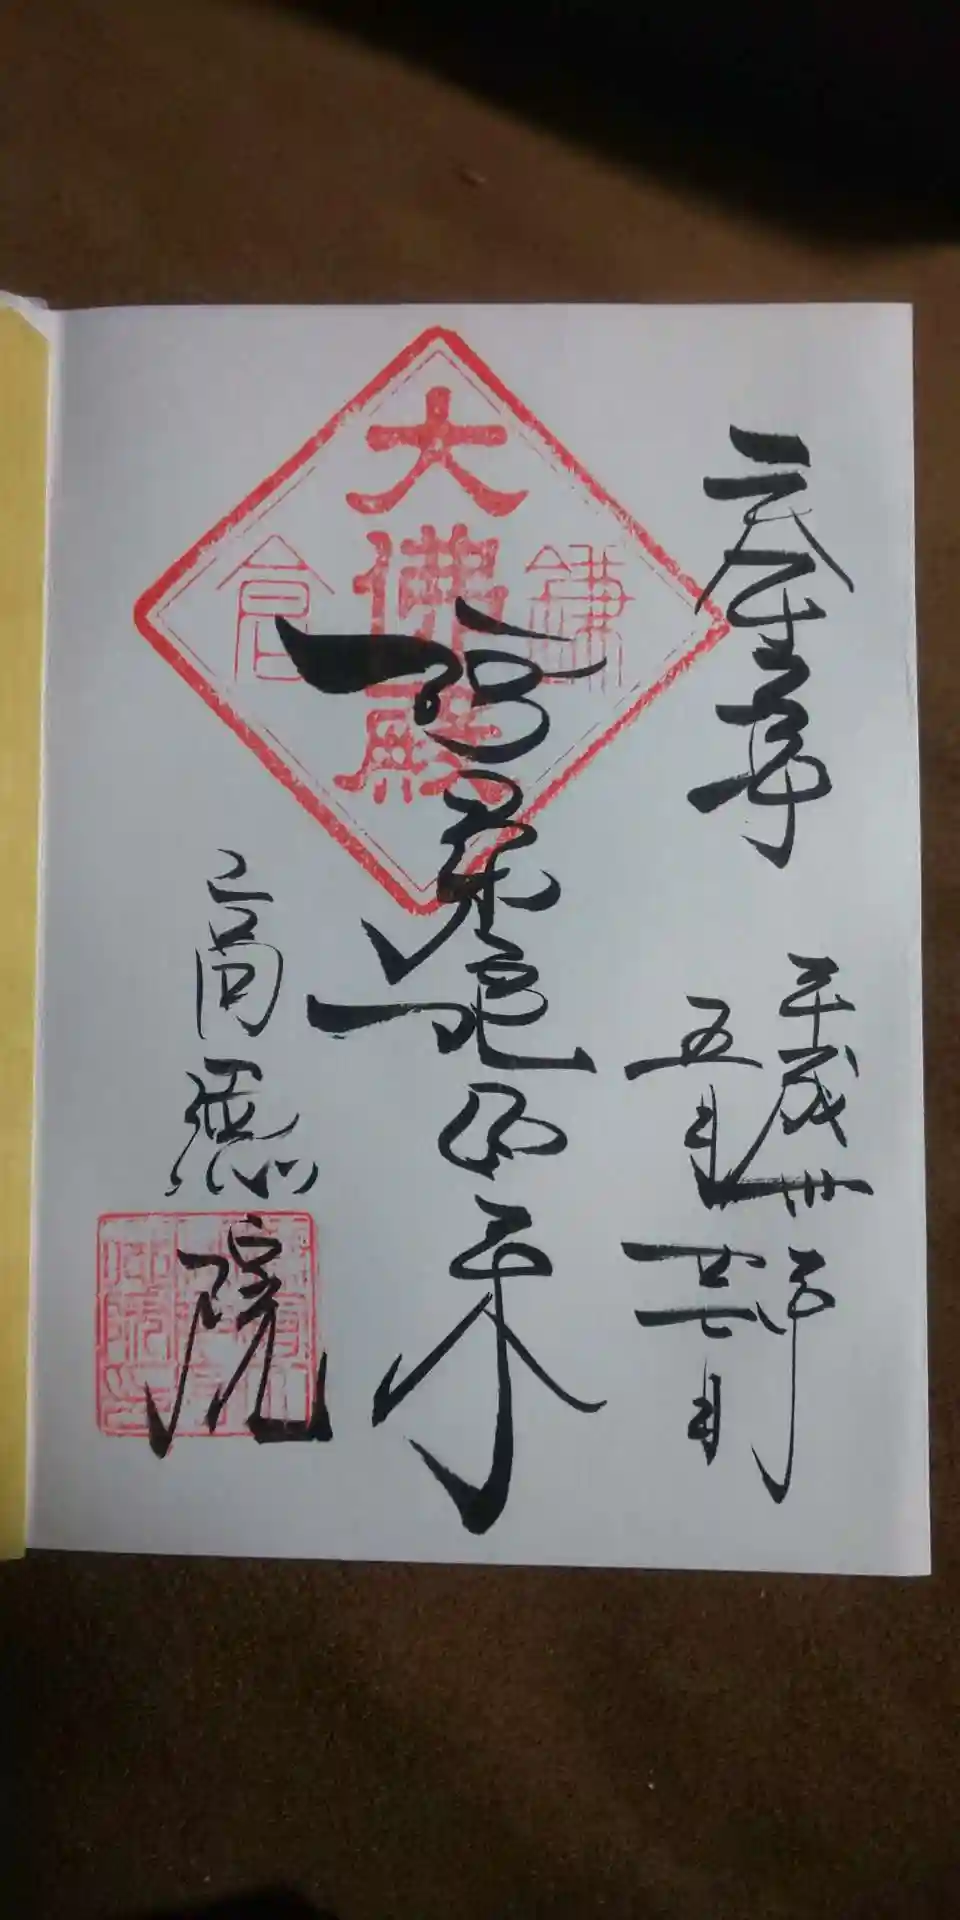 平成卅年
五月廿七日
大佛殿
鎌
倉
阿弥陀如来
高徳院